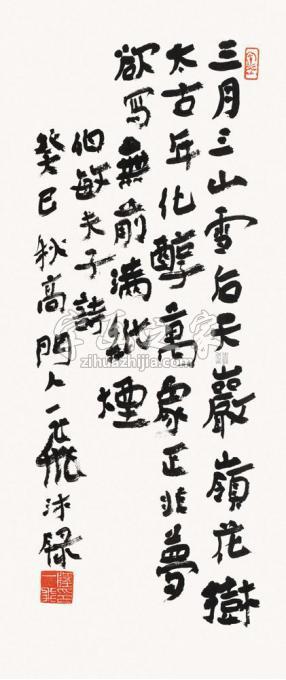 三月三山雪后天巖嶺花樹
太古丘化醇萬象正非夢
欲寫無前满纸煙
伯敏夫子詩
癸巳秋高門人一飛沐録
字画之家
zihuazhijia.com